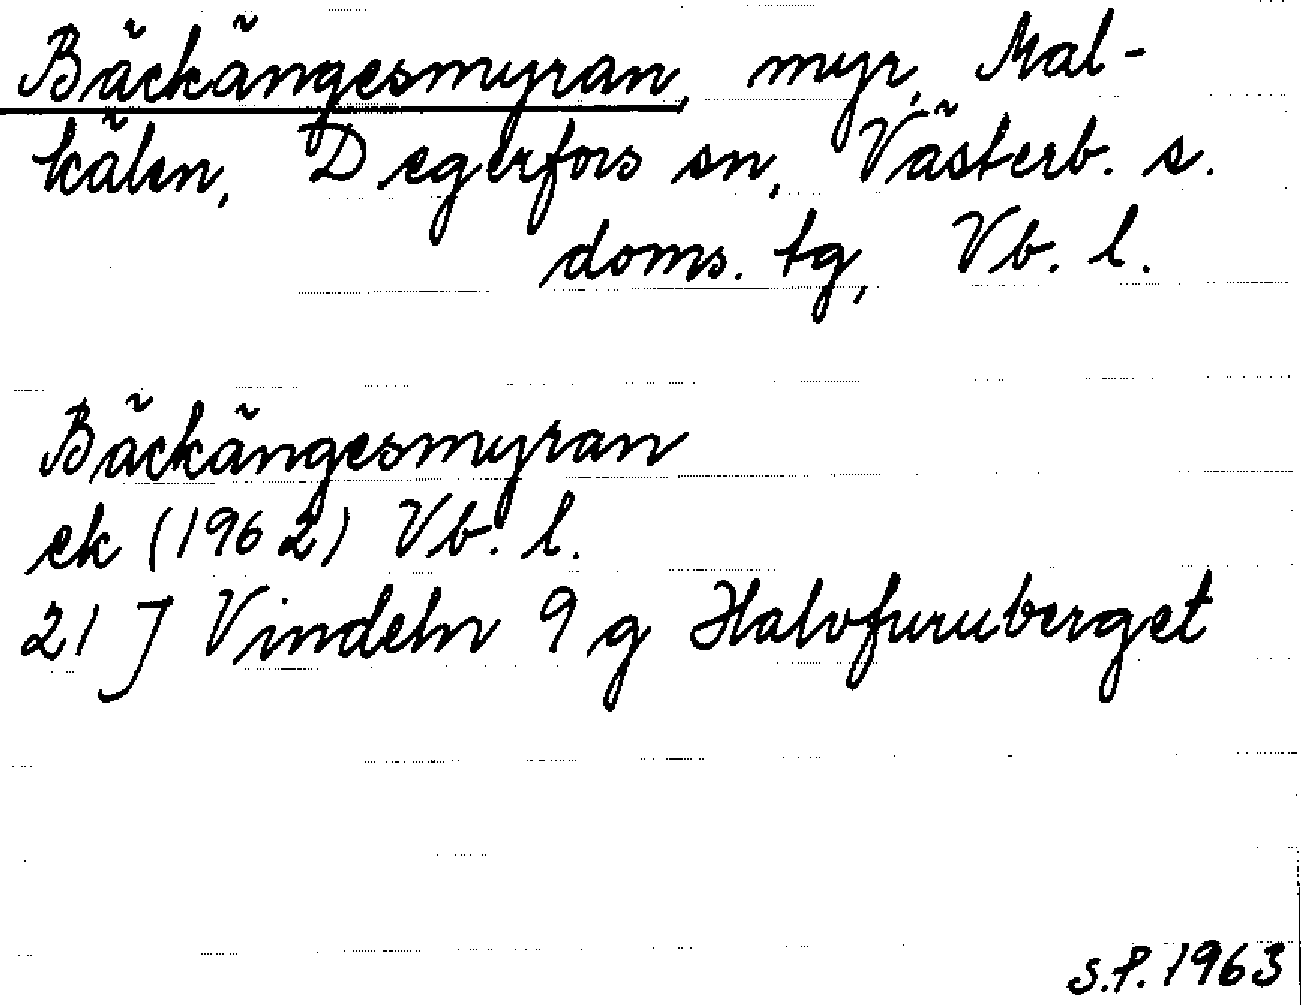 Bäckängesmyran, myr, Mal-
kälen, Degerfors sn, Västerb. s.
doms. tg, Vb. l.
Bäckängesmyran
ek (1962) Vb. l.
21 J Vindeln 9 g Halvfuruberget
S.P. 1963